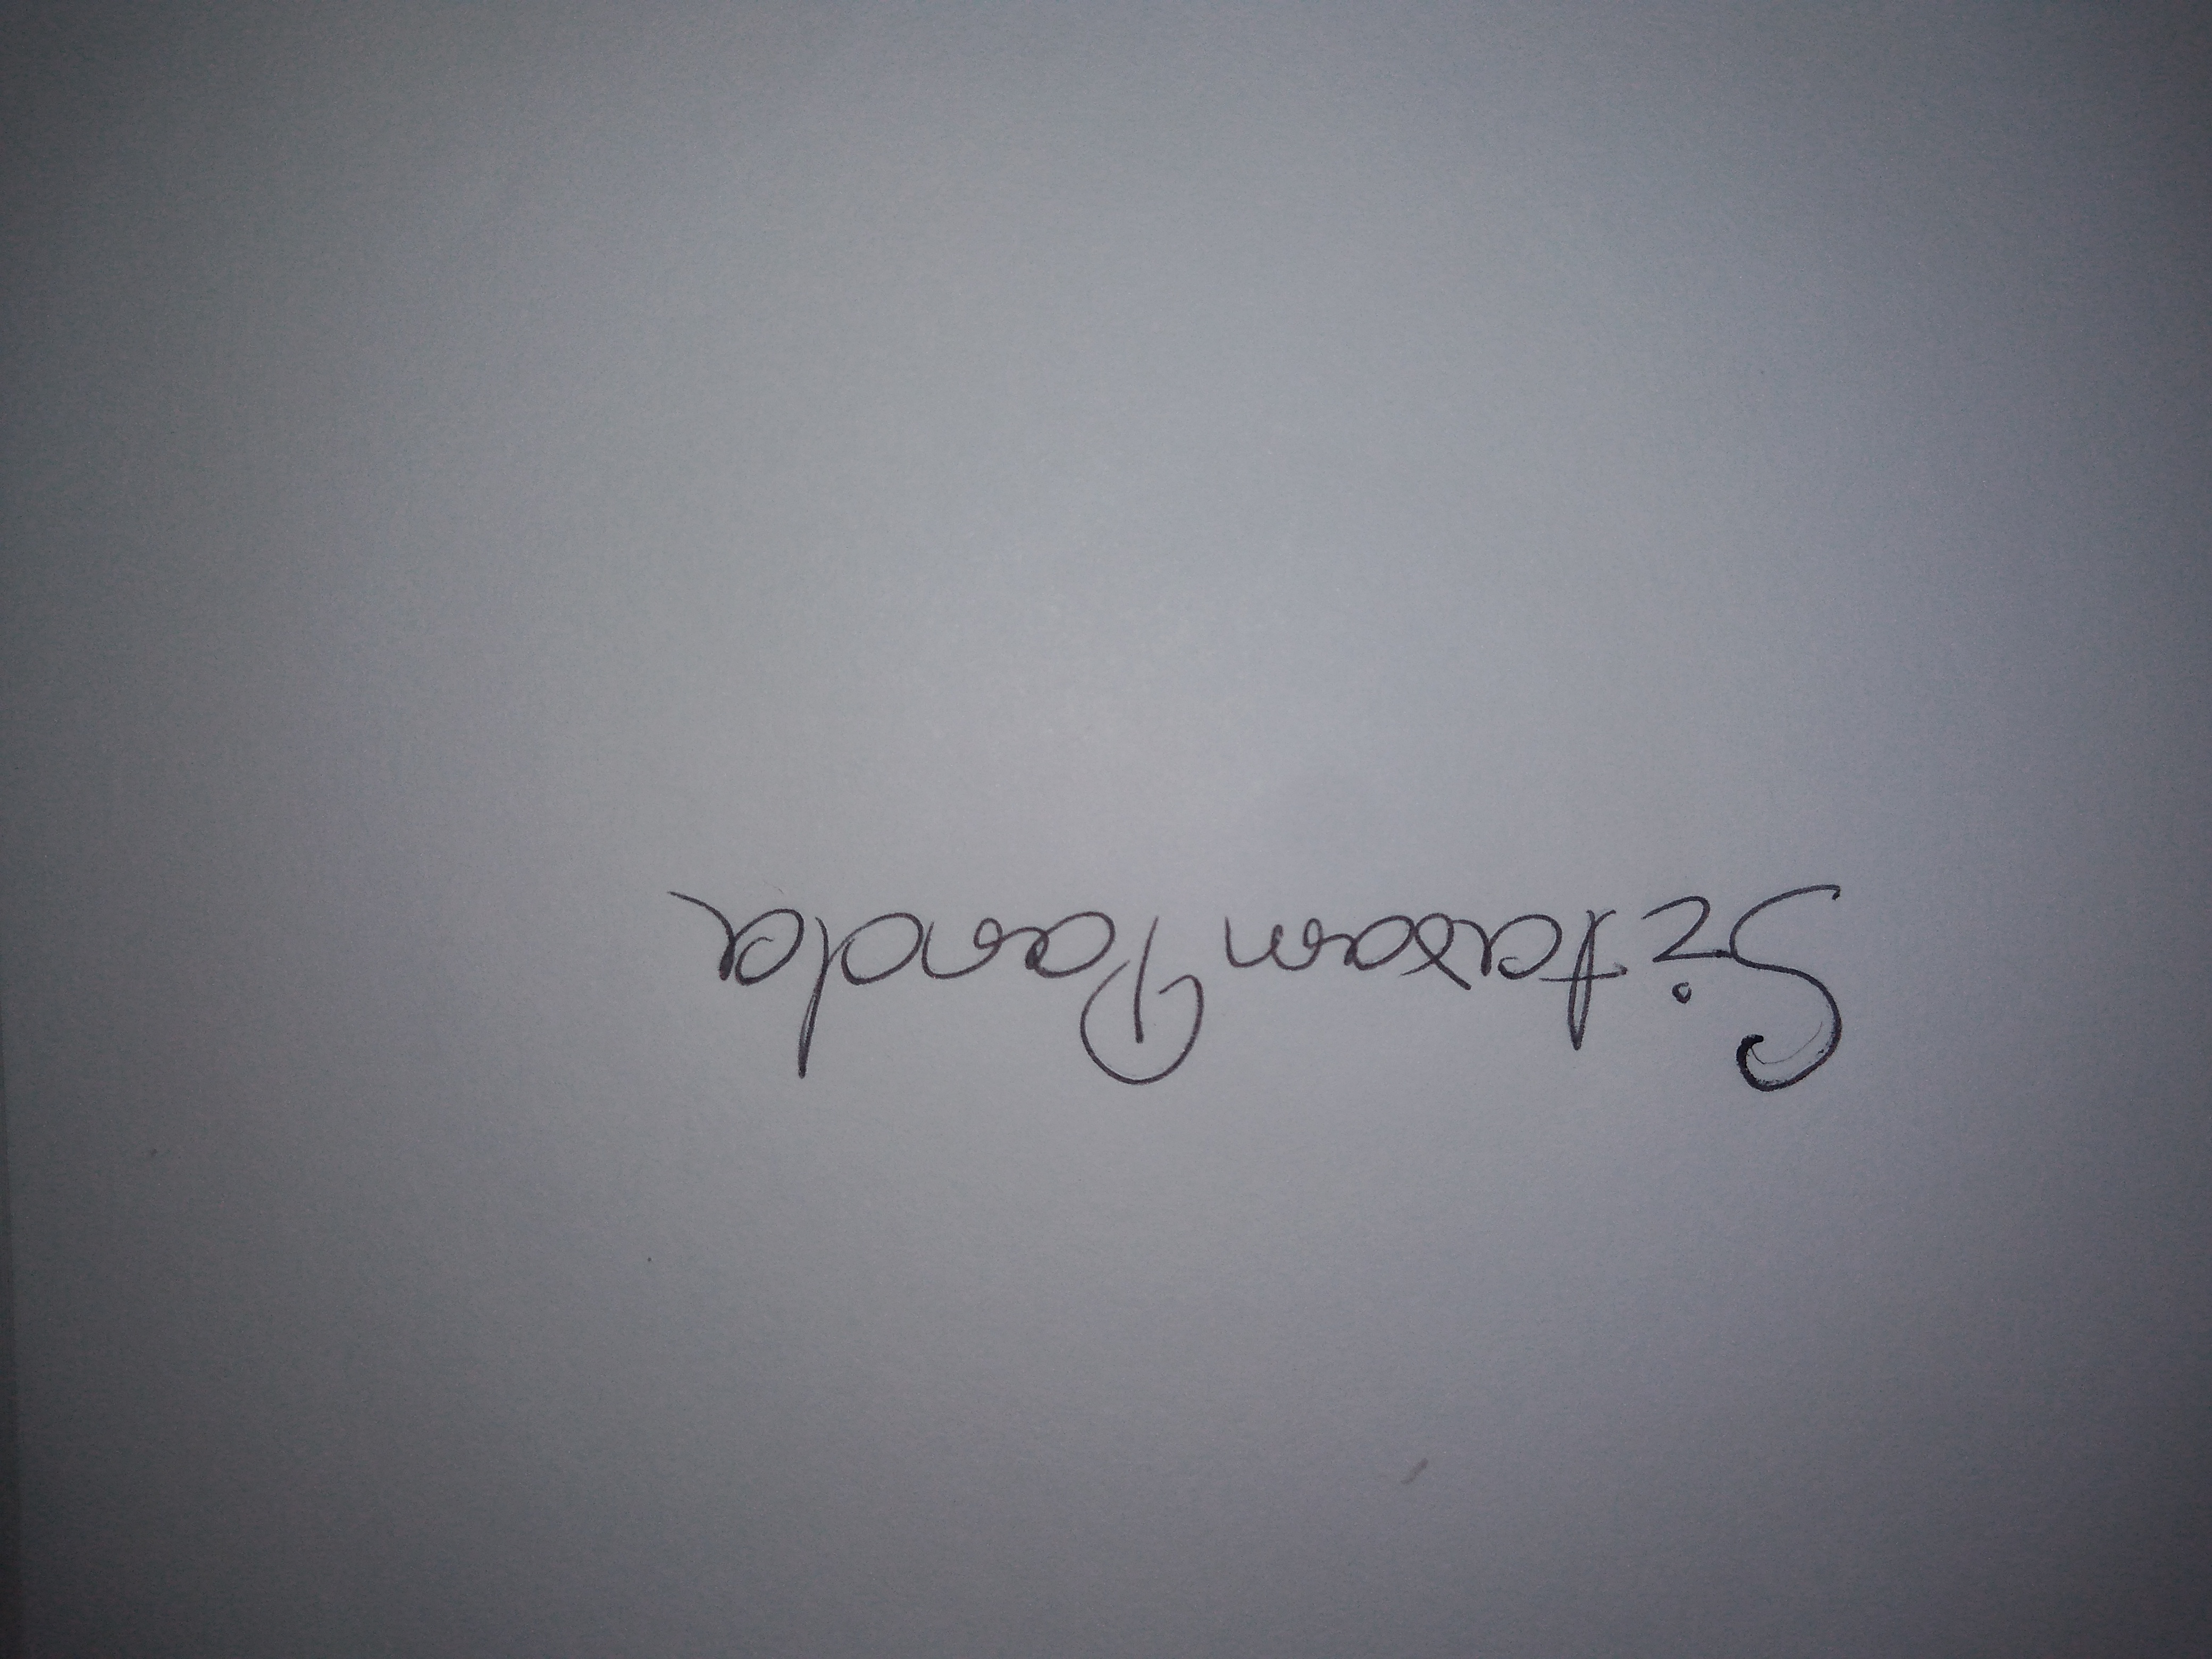 Sitaram Panda